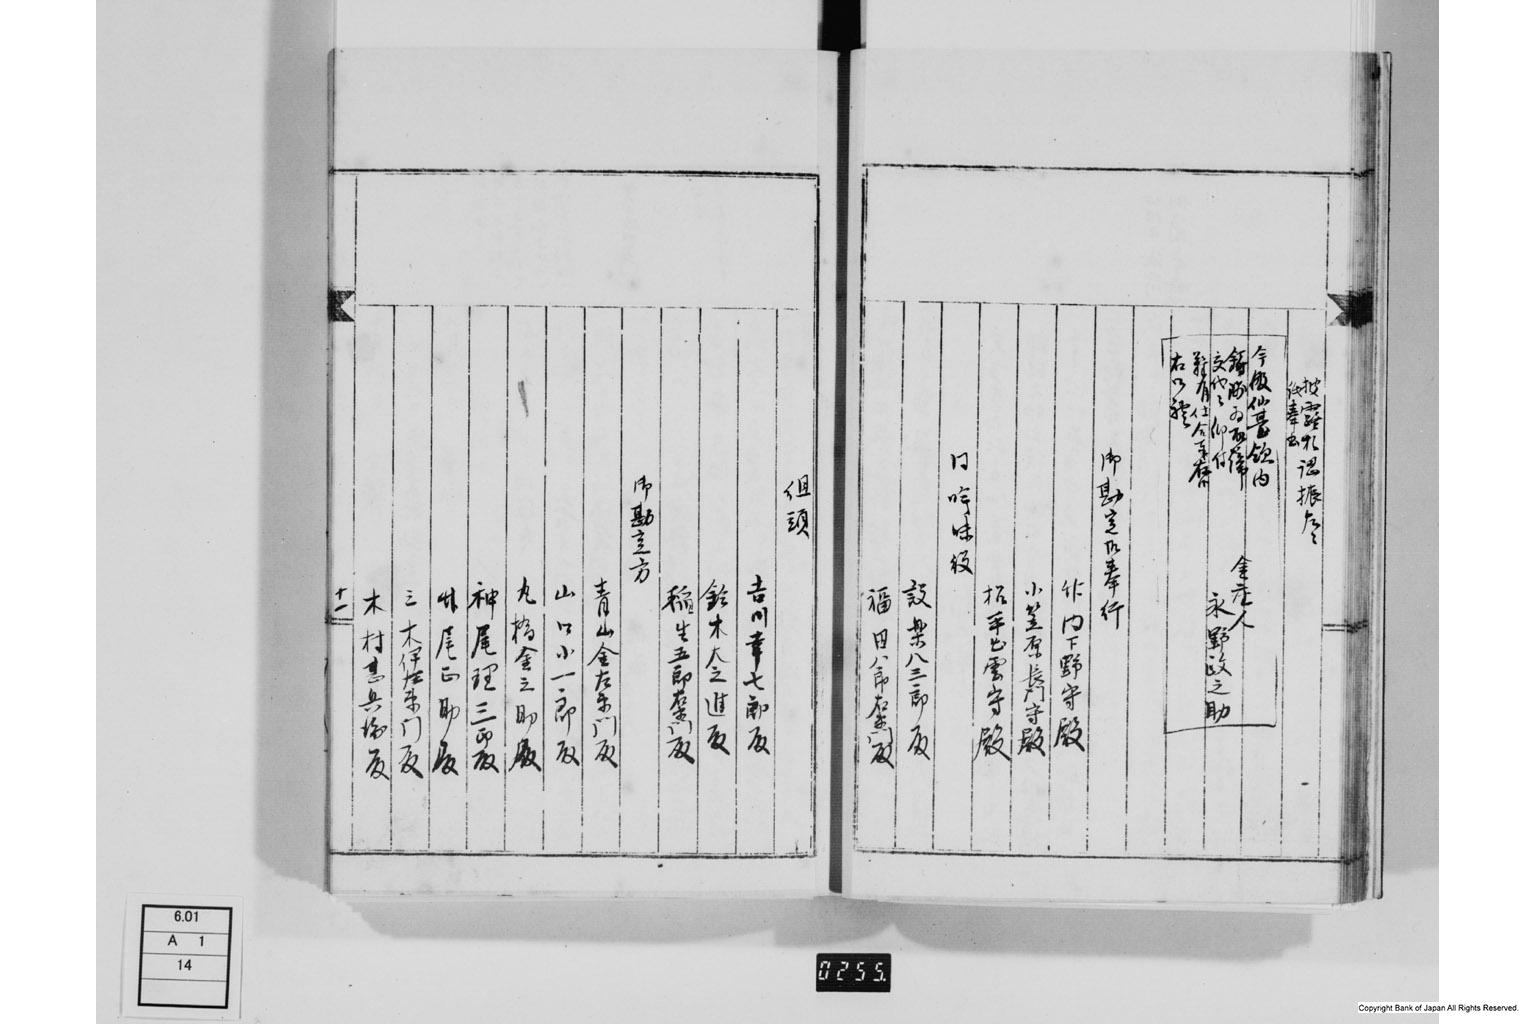 披露状認振冬之
紙奉書
今般仙臺領内
鋳銭為取締
交代之仰付
難有仕合奉存
右御礼
金座人
永野政之助
御勘定所奉行
竹内下野守殿
小笠原長門守殿
松平出雲守殿
同吟味役
設楽八三郎殿
福田八郎右衛門殿
組頭
吉川幸七郎殿
鈴木大之進殿
稲生五郎右衛門殿
御勘定方
青山金左衛門殿
山口小一郎殿
丸橋金之助殿
神尾理三郎殿
井尾正助殿
三木伊左衛門殿
木村甚兵衛殿
十一
6.01
A 1
14
0255.
Copyright Bank of Japan All Rights Reserved.